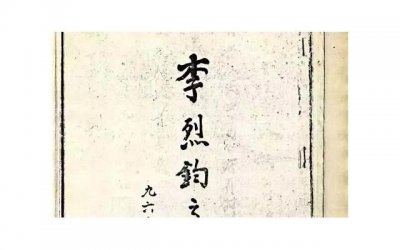 李烈鈞之
九六